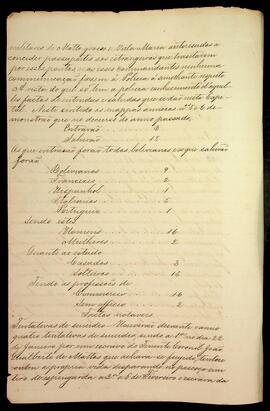 militares de Matto grosso e Villa Maria autorisados a
conceder passaportes aos estrangeiros que transitarem
por esses pontos, mas esses commandantes nenhuma
communicação fazem á Policia á semelhante respeito
A vista do que só tem a policia conhecimento d'aquel
les factos de entradas e sahidas que se dão nesta Capi
tal. Neste sentido os mappas annexos nos 5 e 6 de
monstrão que no decurso do anno passado,
Entrarão 3
Sahirão 18
As que entrarão forão todas bolivianas e os que sahirão
forão
Bolivianos 9
Francezes 2
Hespanhol 1
Italianos 5
Portuguez 1
Sendo estes
Homens 16
Mulheres 2
Quanto ao estado
Casados 3
Solteiros 15
Tendo as profissões de
Commercio 16
Sem officio 2
Factos notaveis
Tentativas de suicidio - Houverão durante o anno
quatro tentativas de suicidio, sendo a 1ª no dia 22
de Janeiro por um escravo do Tenente Coronel João
Gualberto de Mattos que achava-se fugido, tentou
contra a propria vida disparando no pescoço um
tiro de espingarda, a 2ª a 3 de Fevereiro o escravo da